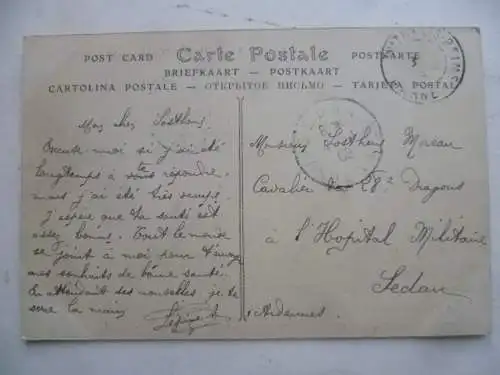 POST CARD Carte Postale POSTKARTE
BRIEFKAART — POSTKAART
CARTOLINA POSTALE — ОТКРЫТОЕ ПИСЬМО — TARJETA POSTAL
Mon cher Sosthens.
Excuse moi si j'ai été
longtemps à te répondre
mais j'ai été très occupé.
J'espère que ta santé est
assez bonne. Tout le monde
se joint à moi pour
mes souhaits de bonne santé.
En attendant ses nouvelles je te
serre la main
Monsieur Sosthens Moreau
Cavalier 28e Dragons
à l'Hopital Militaire
Sedan
Ardennes